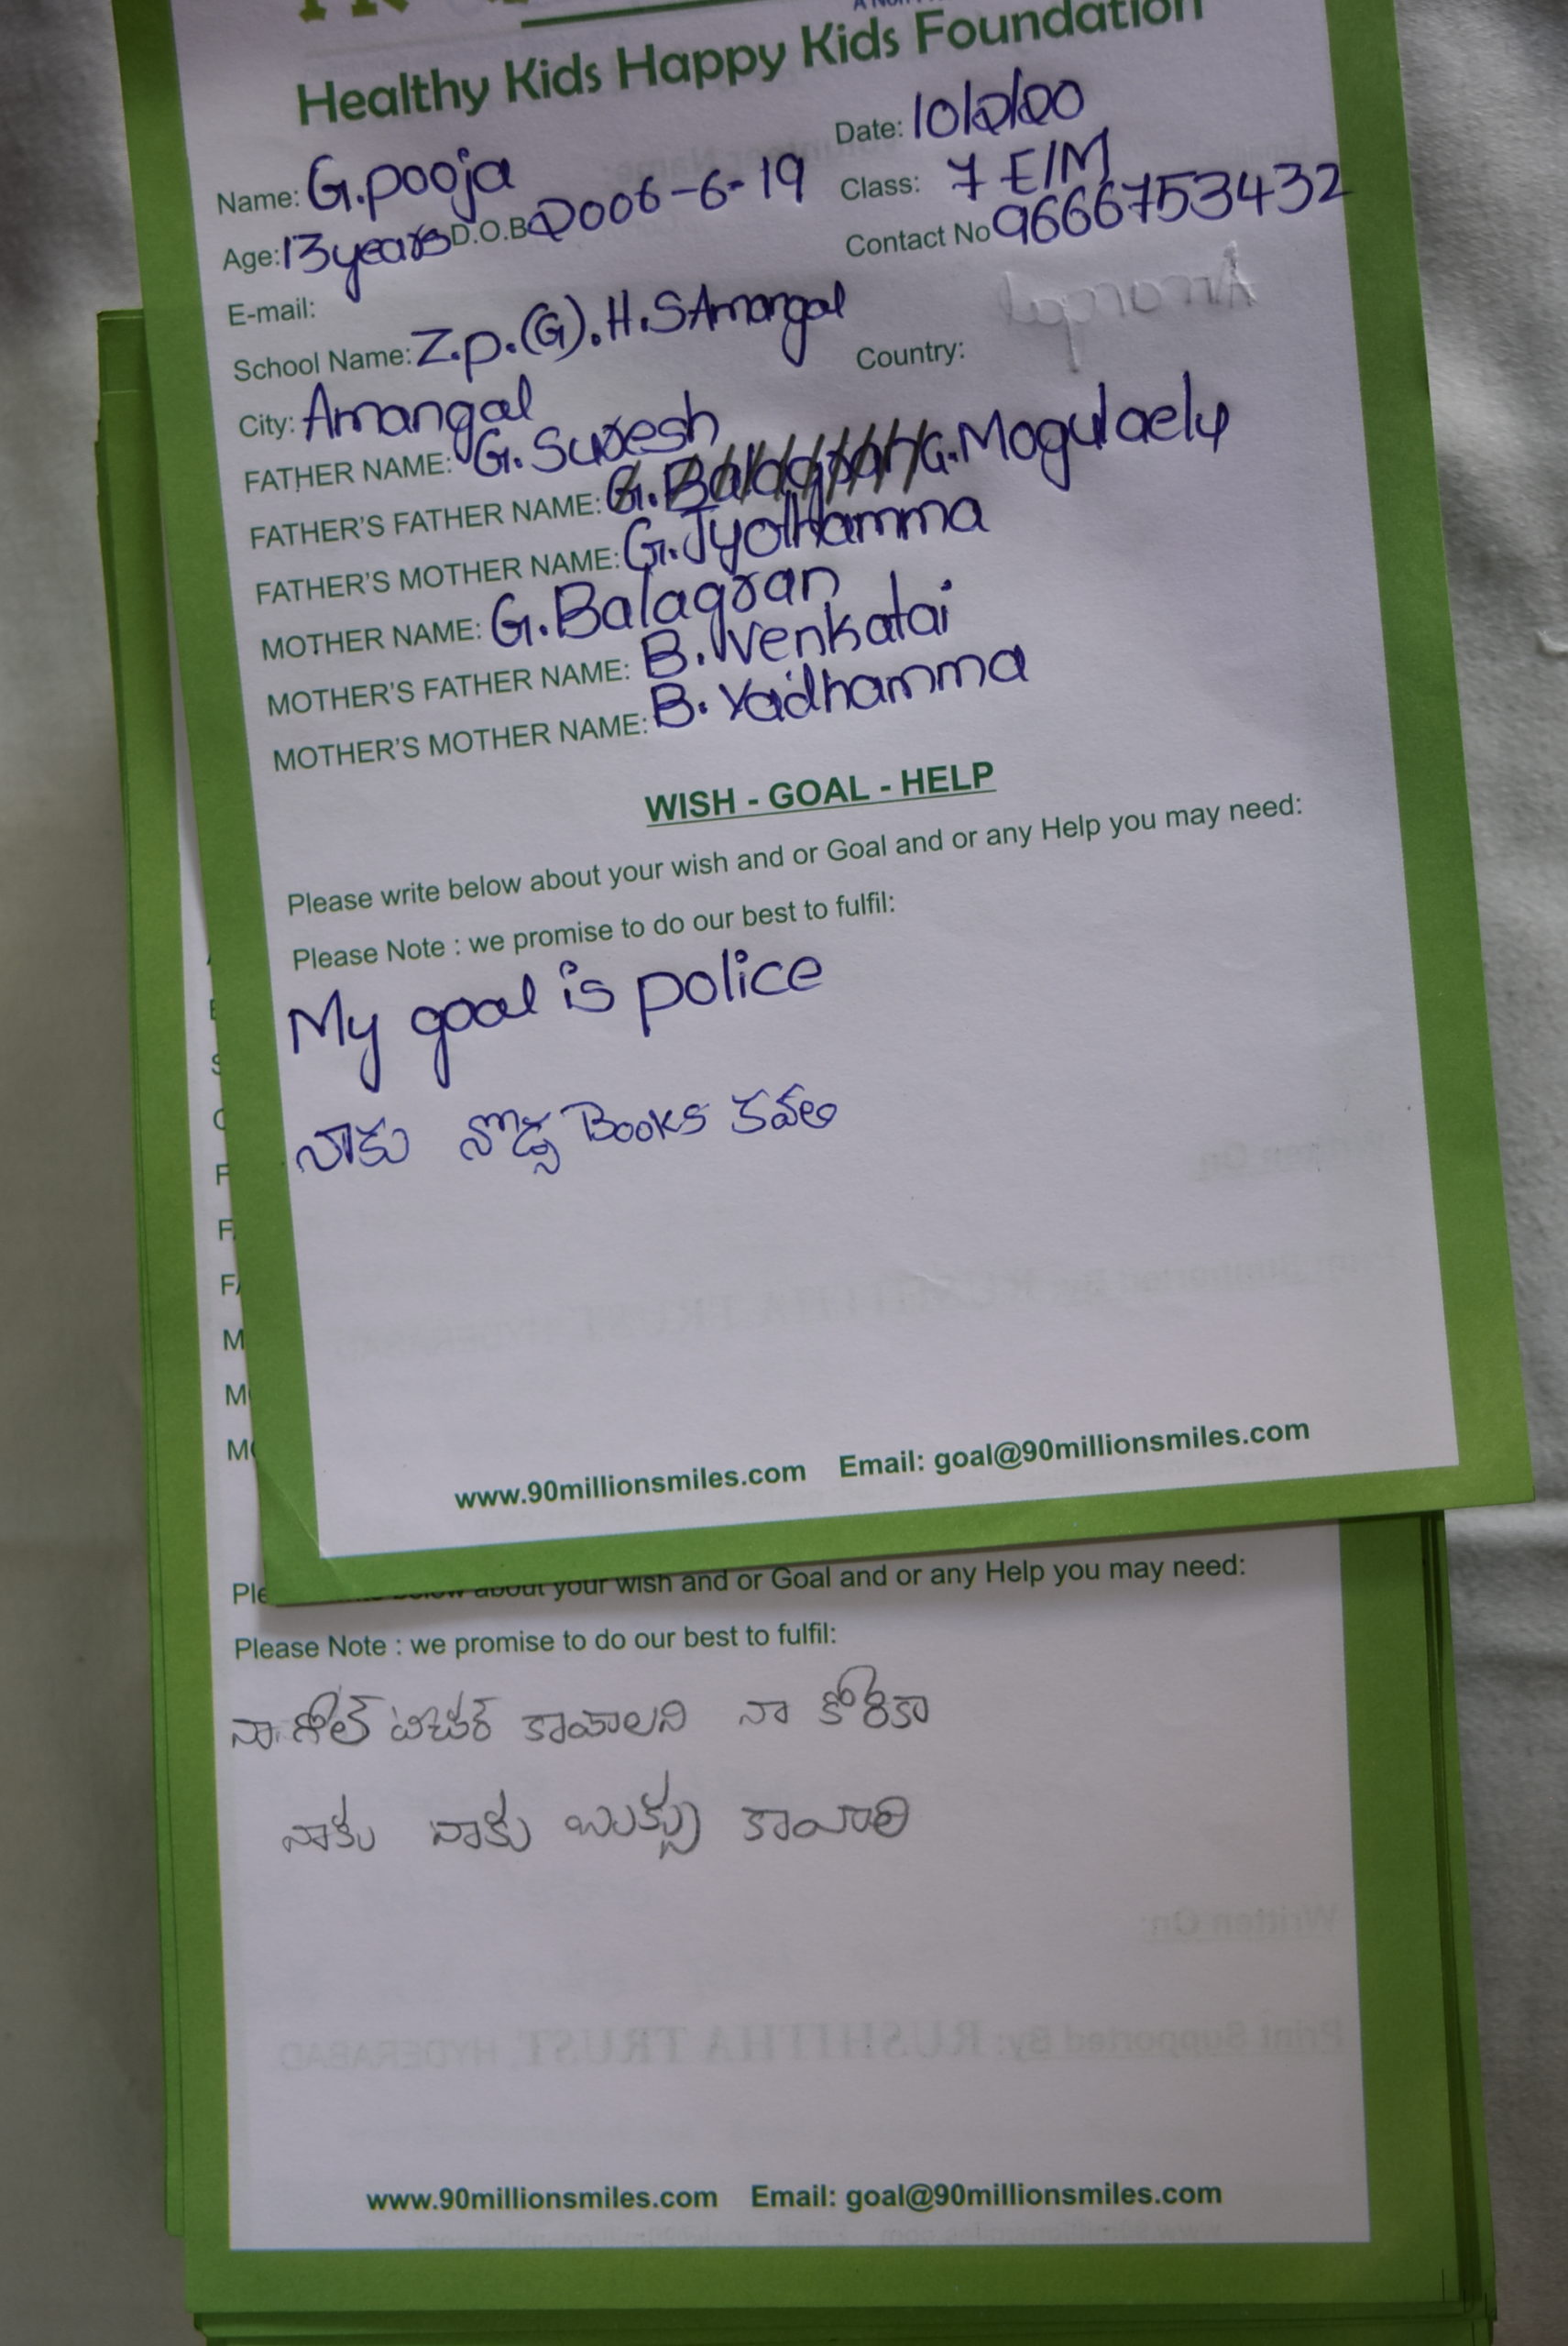 Healthy Kids Happy Kids Foundation
Name: G.pooja Date: 10/2/20
Age: 13 years D.O.B 2006-6-19 Class: 7 E/M
Contact No 9666753432
E-mail:
School Name: Z.p.(G).H.S Amangal
City: Amangal Country:
FATHER NAME: G. Suresh
FATHER'S FATHER NAME: G.
FATHER'S MOTHER NAME: G. Jyothamma
MOTHER NAME: G. Balagran
MOTHER'S FATHER NAME: B. Venkatai
MOTHER'S MOTHER NAME: B. Yadhamma
WISH - GOAL - HELP
Please write below about your wish and or Goal and or any Help you may need:
Please Note : we promise to do our best to fulfil:
My goal is police
నాకు నొడ్స Books కవలె
www.90millionsmiles.com Email: goal@90millionsmiles.com
about your wish and or Goal and or any Help you may need:
Please Note : we promise to do our best to fulfil:
నా గోల్ టిచర్ కావాలని నా కోరికా
నాకు నాకు బుక్స్ కావాలి
www.90millionsmiles.com Email: goal@90millionsmiles.com